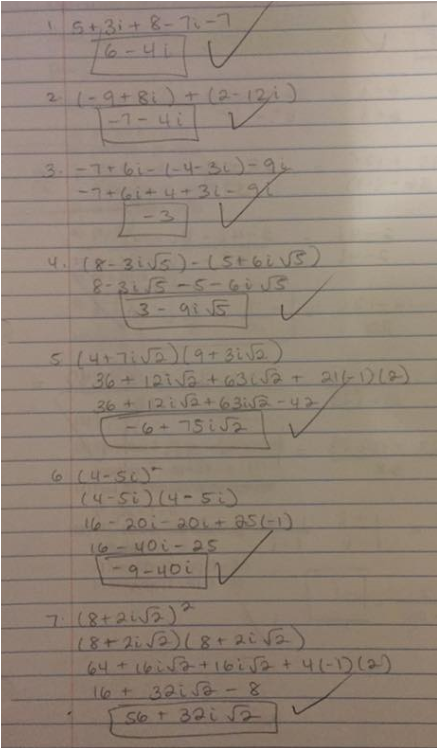 1. 5+3i+8-7i-7
6-4i
2. (-9+8i)+(2-12i)
-7-4i
3. -7+6i-(-4-3i)-9i
-7+6i+4+3i-9i
-3
4. (8-3i√5)-(5+6i√5)
8-3i√5-5-6i√5
3-9i√5
5 (4+7i√2)(9+3i√2)
36+12i√2+63i√2+21(-1)(2)
36+12i√2+63i√2-42
-6+75i√2
6 (4-5i)²
(4-5i)(4-5i)
16-20i-20i+25(-1)
16-40i-25
-9-40i
7. (8+2i√2)²
(8+2i√2)(8+2i√2)
64+16i√2+16i√2+4(-1)(2)
16+32i√2-8
56+32i√2